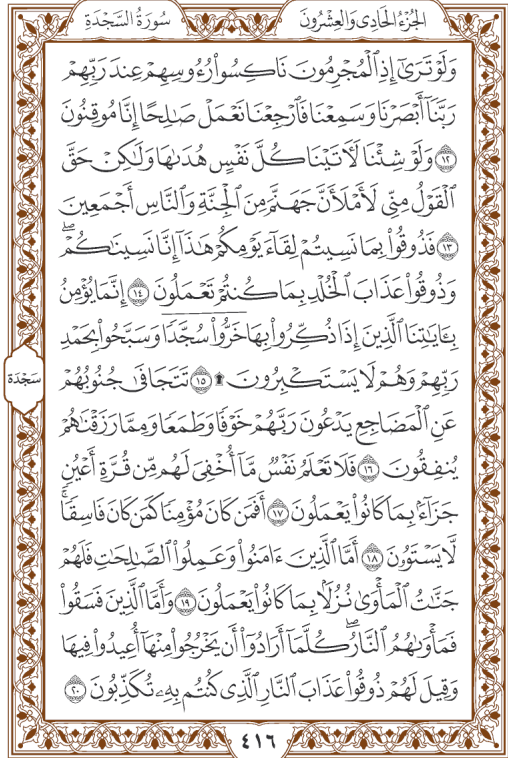 الجُزْءُ الحَادِي وَالعِشْرُونَ
سُورَةُ السَّجْدَةِ
وَلَوْ تَرَىٰٓ إِذِ ٱلْمُجْرِمُونَ نَاكِسُوا۟ رُءُوسِهِمْ عِندَ رَبِّهِمْ
رَبَّنَآ أَبْصَرْنَا وَسَمِعْنَا فَٱرْجِعْنَا نَعْمَلْ صَـٰلِحًا إِنَّا مُوقِنُونَ
١٢ وَلَوْ شِئْنَا لَـَٔاتَيْنَا كُلَّ نَفْسٍ هُدَىٰهَا وَلَـٰكِنْ حَقَّ
ٱلْقَوْلُ مِنِّى لَأَمْلَأَنَّ جَهَنَّمَ مِنَ ٱلْجِنَّةِ وَٱلنَّاسِ أَجْمَعِينَ
١٣ فَذُوقُوا۟ بِمَا نَسِيتُمْ لِقَآءَ يَوْمِكُمْ هَـٰذَآ إِنَّا نَسِينَـٰكُمْ ۖ
وَذُوقُوا۟ عَذَابَ ٱلْخُلْدِ بِمَا كُنتُمْ تَعْمَلُونَ ١٤ إِنَّمَا يُؤْمِنُ
بِـَٔايَـٰتِنَا ٱلَّذِينَ إِذَا ذُكِّرُوا۟ بِهَا خَرُّوا۟ سُجَّدًا وَسَبَّحُوا۟ بِحَمْدِ
رَبِّهِمْ وَهُمْ لَا يَسْتَكْبِرُونَ ۩ ١٥ تَتَجَافَىٰ جُنُوبُهُمْ
سَجْدَة
عَنِ ٱلْمَضَاجِعِ يَدْعُونَ رَبَّهُمْ خَوْفًا وَطَمَعًا وَمِمَّا رَزَقْنَـٰهُمْ
يُنفِقُونَ ١٦ فَلَا تَعْلَمُ نَفْسٌ مَّآ أُخْفِىَ لَهُم مِّن قُرَّةِ أَعْيُنٍ
جَزَآءًۢ بِمَا كَانُوا۟ يَعْمَلُونَ ١٧ أَفَمَن كَانَ مُؤْمِنًا كَمَن كَانَ فَاسِقًا ۚ
لَّا يَسْتَوُۥنَ ١٨ أَمَّا ٱلَّذِينَ ءَامَنُوا۟ وَعَمِلُوا۟ ٱلصَّـٰلِحَـٰتِ فَلَهُمْ
جَنَّـٰتُ ٱلْمَأْوَىٰ نُزُلًۢا بِمَا كَانُوا۟ يَعْمَلُونَ ١٩ وَأَمَّا ٱلَّذِينَ فَسَقُوا۟
فَمَأْوَىٰهُمُ ٱلنَّارُ ۖ كُلَّمَآ أَرَادُوٓا۟ أَن يَخْرُجُوا۟ مِنْهَآ أُعِيدُوا۟ فِيهَا
وَقِيلَ لَهُمْ ذُوقُوا۟ عَذَابَ ٱلنَّارِ ٱلَّذِى كُنتُم بِهِۦ تُكَذِّبُونَ ٢٠
٤١٦